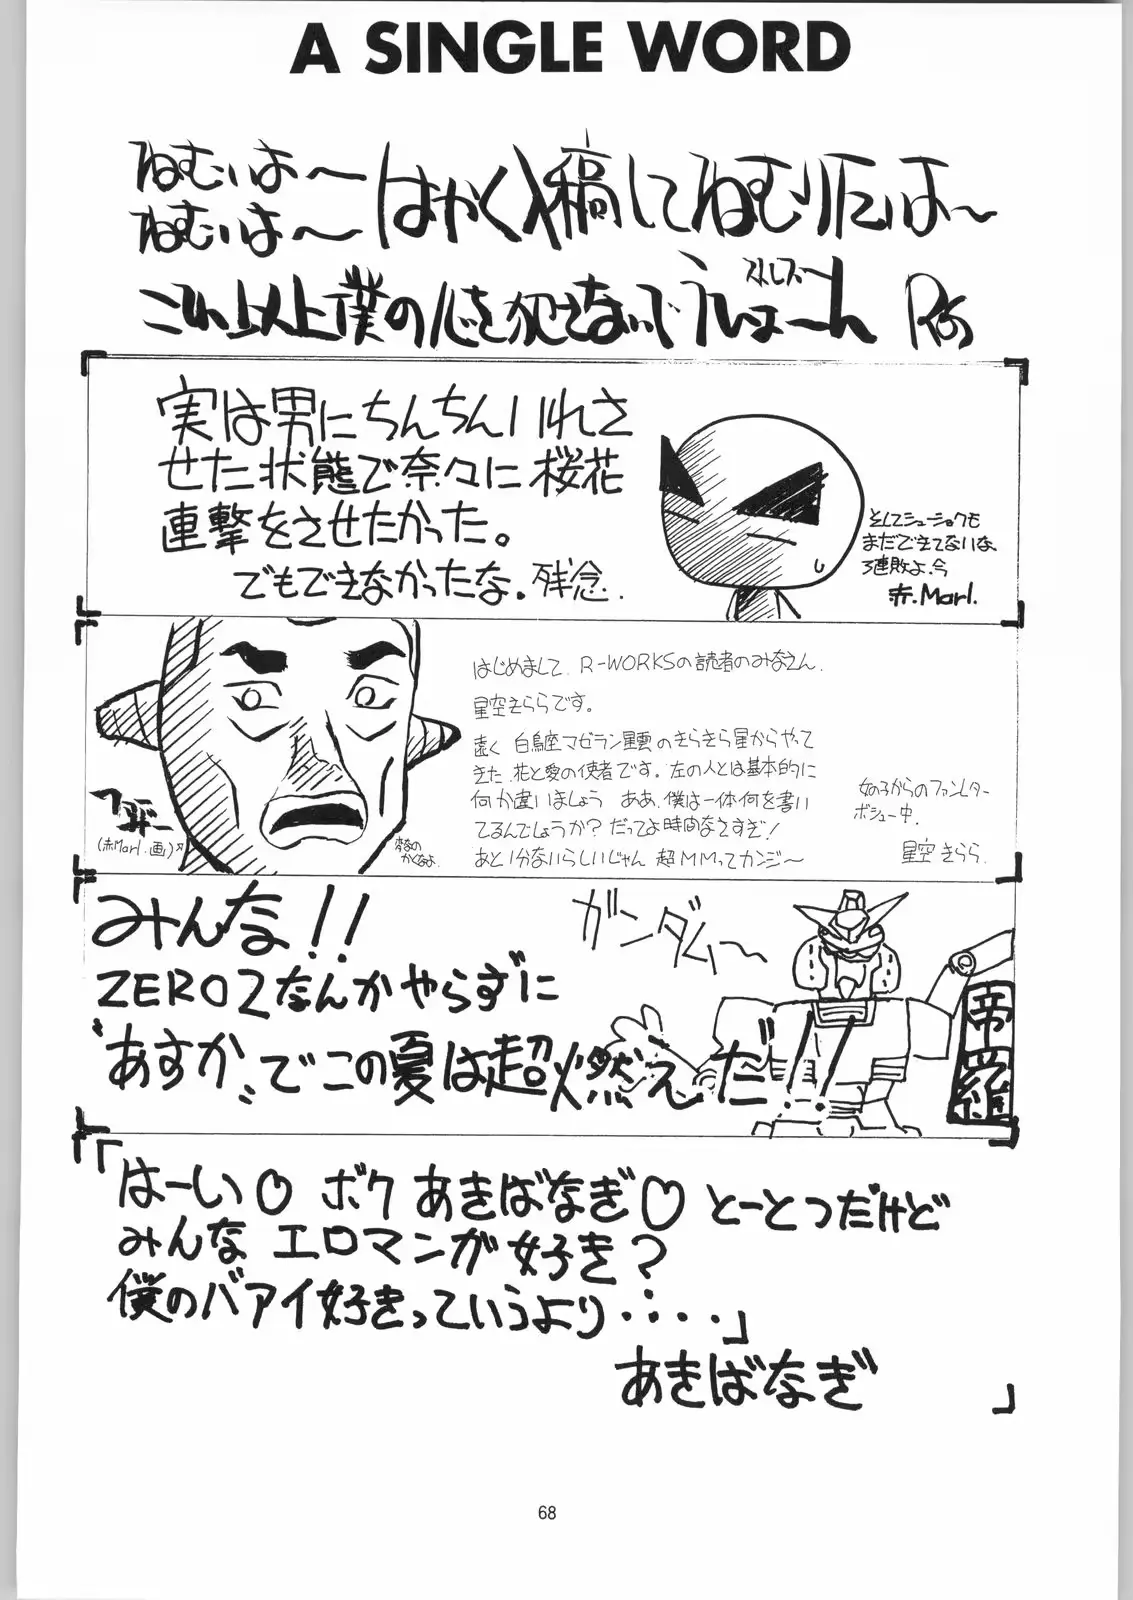 A SINGLE WORD
ねむいよ〜
ねむいよ〜
はやく入稿してねむりたいよ〜
これ以上僕の心を犯さないで
実は男にちんちんいれさ
せた状態で奈々に桜花
連撃をさせたかった。
でもできなかったな。残念.
そしてシューショクも
まだできてないな、
3連敗よ.今
赤.Marl.
はじめまして、R-WORKSの読者のみなさん.
星空きららです。
遠く 白鳥座マゼラン星雲のきらきら星からやって
きた 花と愛の使者です。左の人とは基本的に
何か違いましょう ああ、僕は一体何を書い
てるんでしょうか?だってよ時間なさすぎ!
あと1分ないらしいじゃん 超MMってカンジ〜
女の子からのファンレター
ボシュー中.
星空 きらら.
(赤Marl.画)
みんな!!
ZERO2なんかやらずに
"あすか"でこの夏は超燃えだ!!
ガンダム〜
帝羅
「はーい♡ ボク あきばなぎ♡ とーとつだけど
みんな エロマンが好き?
僕のバアイ好きっていうより・・・・・」
あきばなぎ
68